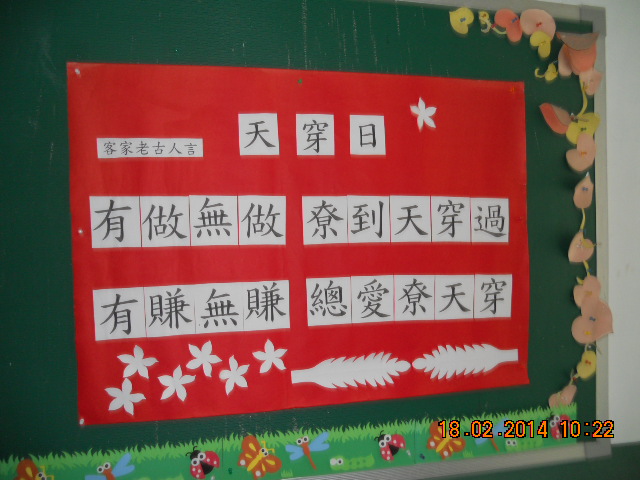 天穿日
客家老古人言
有做無做 尞到天穿過
有賺無賺 總愛尞天穿
18.02.2014 10:22